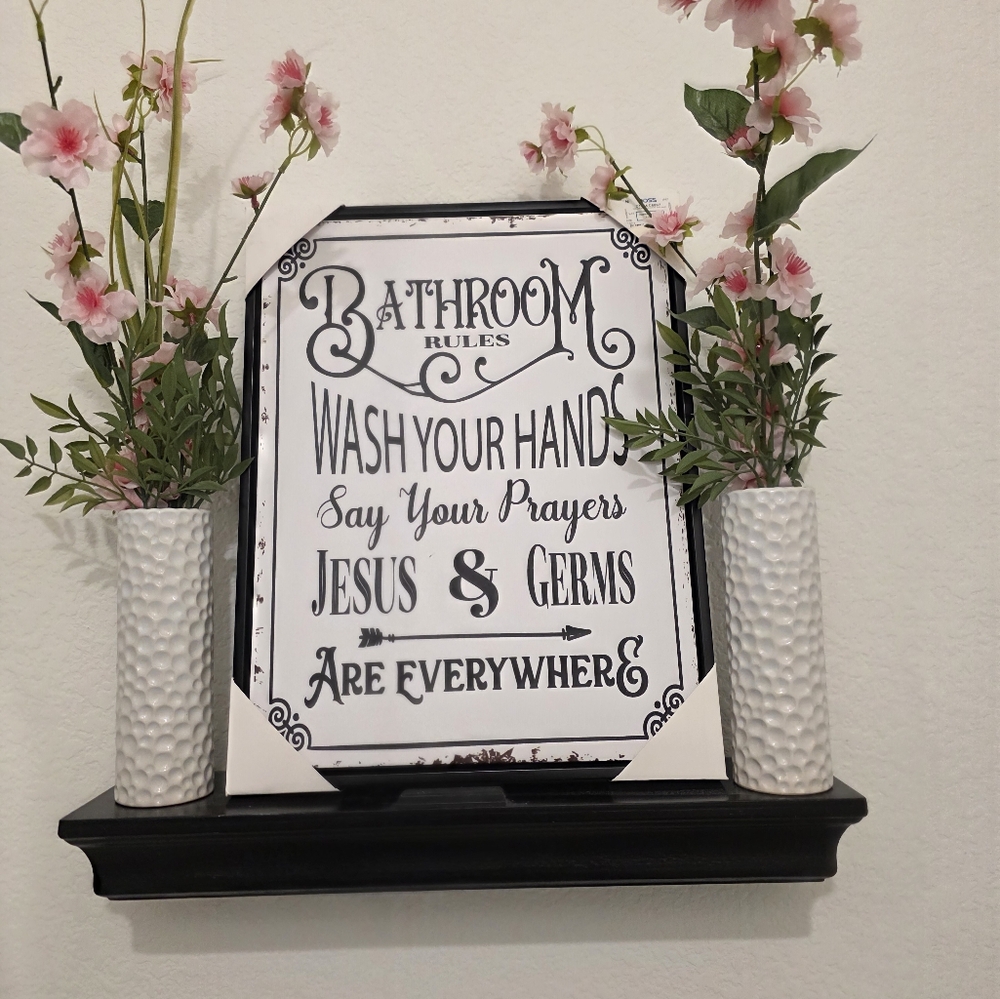 ROSS
BATHROOM
RULES
WASH YOUR HANDS
Say Your Prayers
JESUS & GERMS
ARE EVERYWHERE